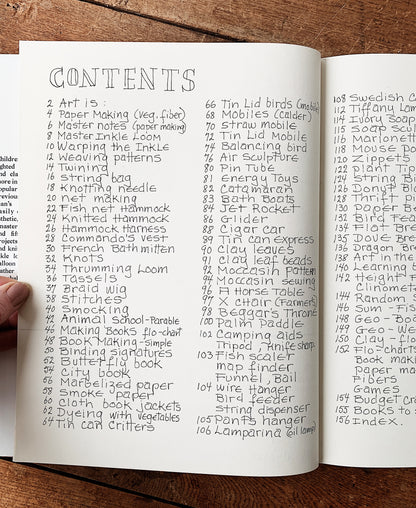 CONTENTS
2 Art is :
4 Paper Making (Veg. fiber)
6 Master notes (paper making)
8 Master Inkle Loom
10 Warping the Inkle
12 Weaving patterns
14 Twining
16 String bag
18 Knotting needle
20 net making
22 Fish net Hammock
24 Knitted Hammock
26 Hammock Harness
28 Commando's vest
30 French Bath mitten
32 Knots
34 Thrumming Loom
36 Tassels
37 Braid wig
38 Stitches
40 Smocking
42 Animal School-Parable
46 Making Books flo-chart
48 Book Making-simple
50 Binding signatures
52 Butterfly book
54 City book
56 Marbelized paper
58 Smoke paper
60 Cloth book jackets
62 Dyeing with Vegetables
64 Tin can Critters
66 Tin Lid birds (mobile)
68 Mobiles (Calder)
70 straw mobile
72 Tin Lid Mobile
74 Balancing bird
76 Air sculpture
80 Pin Tube
81 Energy Toys
82 Catamaran
83 Bath Boats
84 Jet Rocket
86 Glider
88 Cigar car
89 Tin can express
90 Clay leaves
91 Clay leaf beads
92 Moccasin Pattern
94 Moccasin sewing
96 P.J. Horse Table
97 X chair (Farmers)
98 Beggar's Throne
100 Palm Paddle
102 Camping aids
Tripod, Knife sharp.
103 Fish scaler
map finder
Funnel, Bail
104 Wire Hanger
Bird feeder
string dispenser
105 Pants hanger
106 Lamparina (oil lamp)
108 Swedish
112 Tiffany Lam
114 Ivory Soap
115 Soap sculp
116 Marionet
118 Mouse Po
120 Zippets
122 plant Tip
124 String Bi
126 Donut Bi
128 Thrift pi
130 Paper Be
132 Bird Fee
134 Flat Bre
135 Dove Bre
136 Dragon Br
138 Art in the
140 Learning
142 Height F
Clinomete
144 Random
146 Sum - Fis
148 Geo - Boa
149 Geo - We
150 Clay - flo
152 Flo-Charts
Book mak
Paper ma
Fibers
Games
154 Budget
155 Books to
156 Index.